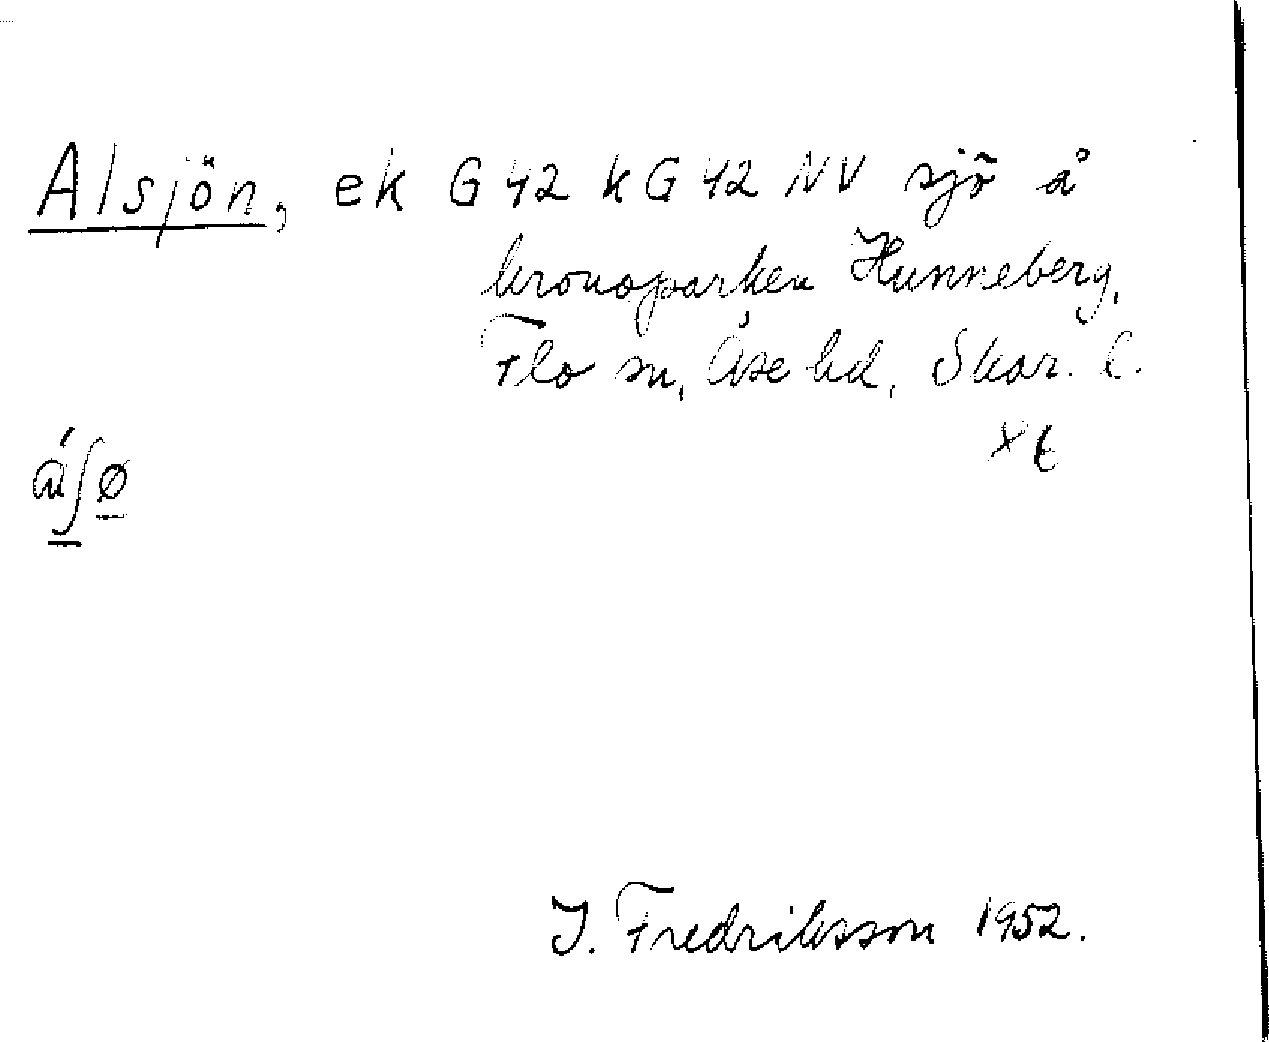 Alsjön, ek G42 k G42 NV sjö å
kronoparken Hunneberg,
Flo sn, Åse hd, Skar. l.
I. Fredriksson 1952.